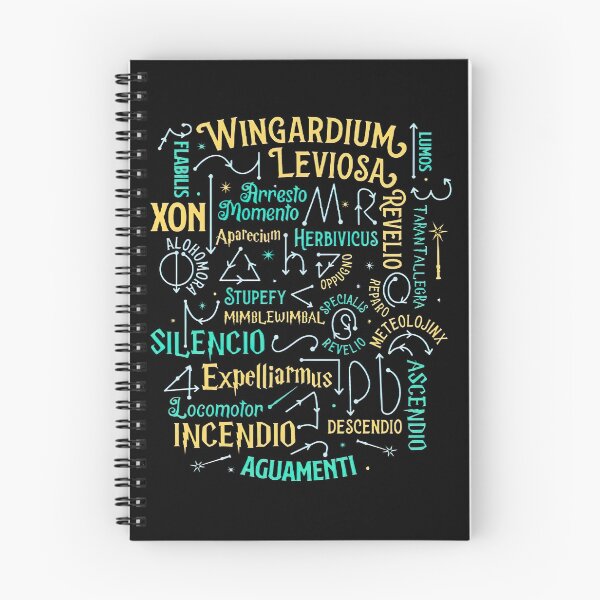 Wingardium
Leviosa
LUMOS
FLABILIS
XON
Arresto
Momento
REVELIO
TARANTALLEGRA
Aparecium
HERBIVICUS
ALOHOMORA
OPPUGNO
STUPEFY
MIMBLEWIMBAL
SPECIALIS
REVELIO
REPARO
METEOLOJINX
SILENCIO
ASCENDIO
Expelliarmus
Locomotor
INCENDIO
DESCENDIO
AGUAMENTI